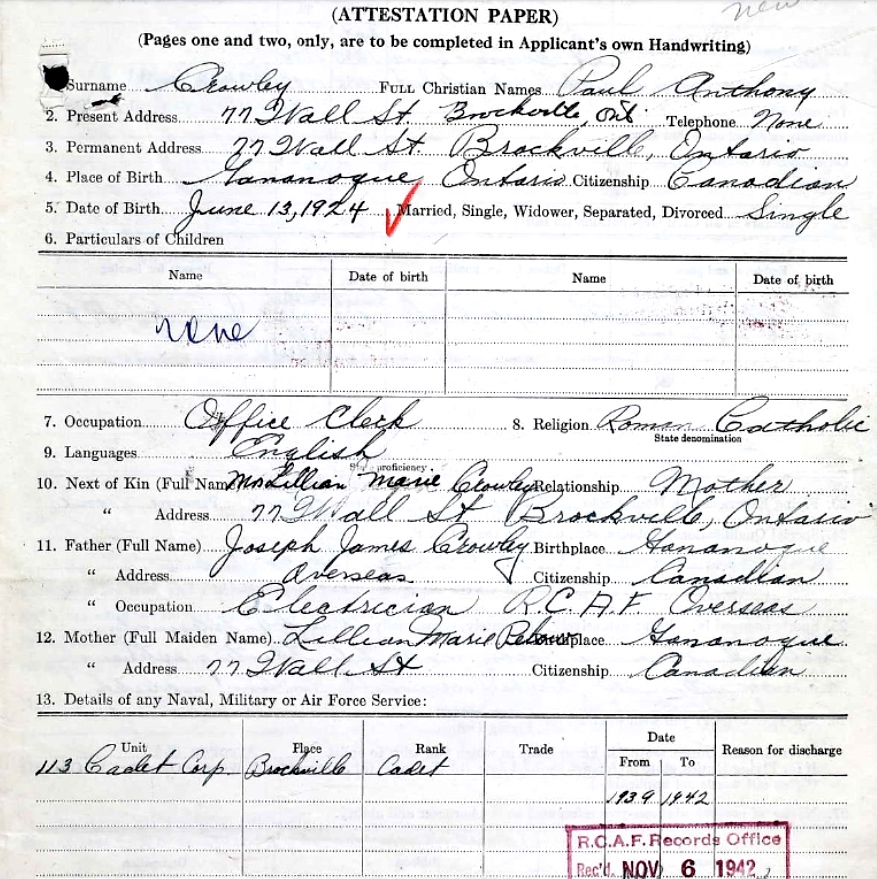 new
(ATTESTATION PAPER)
(Pages one and two, only, are to be completed in Applicant's own Handwriting)
Surname Crowley FULL Christian Names Paul Anthony
2. Present Address 77 Wall St. Brockville, Ont. Telephone None
3. Permanent Address 77 Wall St. Brockville, Ontario
4. Place of Birth Gananoque, Ontario Citizenship Canadian
5. Date of Birth June 13, 1924 Married, Single, Widower, Separated, Divorced Single
6. Particulars of Children
Name Date of birth Name Date of birth
none
7. Occupation Office Clerk 8. Religion Roman Catholic
State denomination
9. Languages English
proficiency
10. Next of Kin (Full Name Mrs Lillian Marie Crowley Relationship Mother
" Address 77 Wall St Brockville, Ontario
11. Father (Full Name) Joseph James Crowley Birthplace Gananoque
" Address Overseas Citizenship Canadian
" Occupation Electrician R.C.A.F. Overseas
12. Mother (Full Maiden Name) Lillian Marie Gananoque
" Address 77 Wall St Citizenship Canadian
13. Details of any Naval, Military or Air Force Service:
Unit Place Rank Trade Date From To Reason for discharge
113 Cadet Corp. Brockville Cadet
1939 1942
R.C.A.F. Records Office
Rec'd. NOV 6 1942